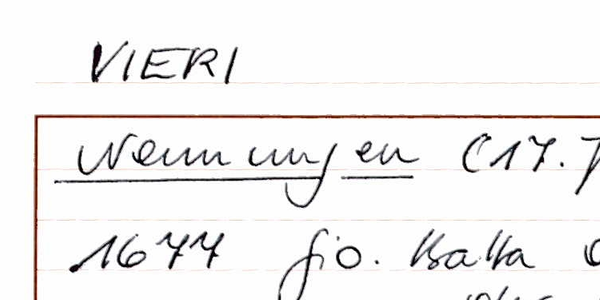 VIERI
Nennungen (17.
1677 Gio. Batta